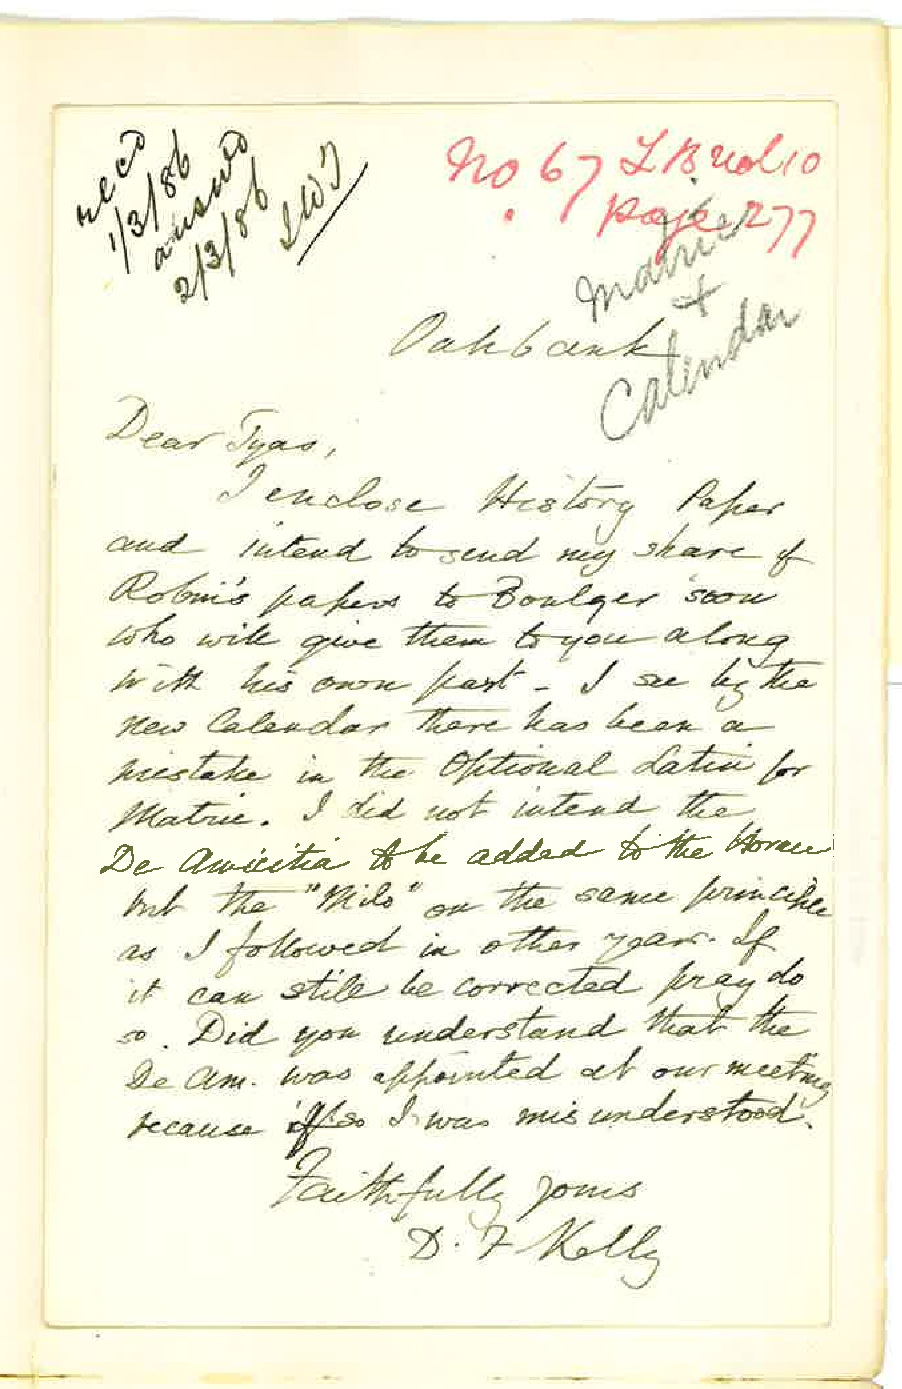 recd
1/3/86
answd
2/3/86
JWT
No 67 LB vol 10
page 277
Matric
+
Calendar
Oakbank
Dear Tyas,
I enclose History Paper
and intend to send my share of
Robin's papers to Boulger soon
who will give them to you along
with his own part - I see by the
new Calendar there has been a
mistake in the Optional Latin for
Matric. I did not intend the
De Amicitia to be added to the Horace
but the "Milo" on the same principle
as I followed in other years. If
it can still be corrected pray do
so. Did you understand that the
De Am. was appointed at our meeting
because if so I was misunderstood.
Faithfully yours
D. F Kelly